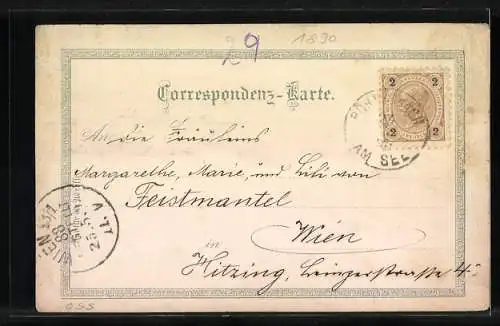 29
1890
Correspondenz-Karte.
2 2
2 2
AM SEE
An die Fräuleins
Margarethe, Marie, und Lili von
Feistmantel
Wien
in
Hitzing, Lainzerstrasse 4.
WIEN